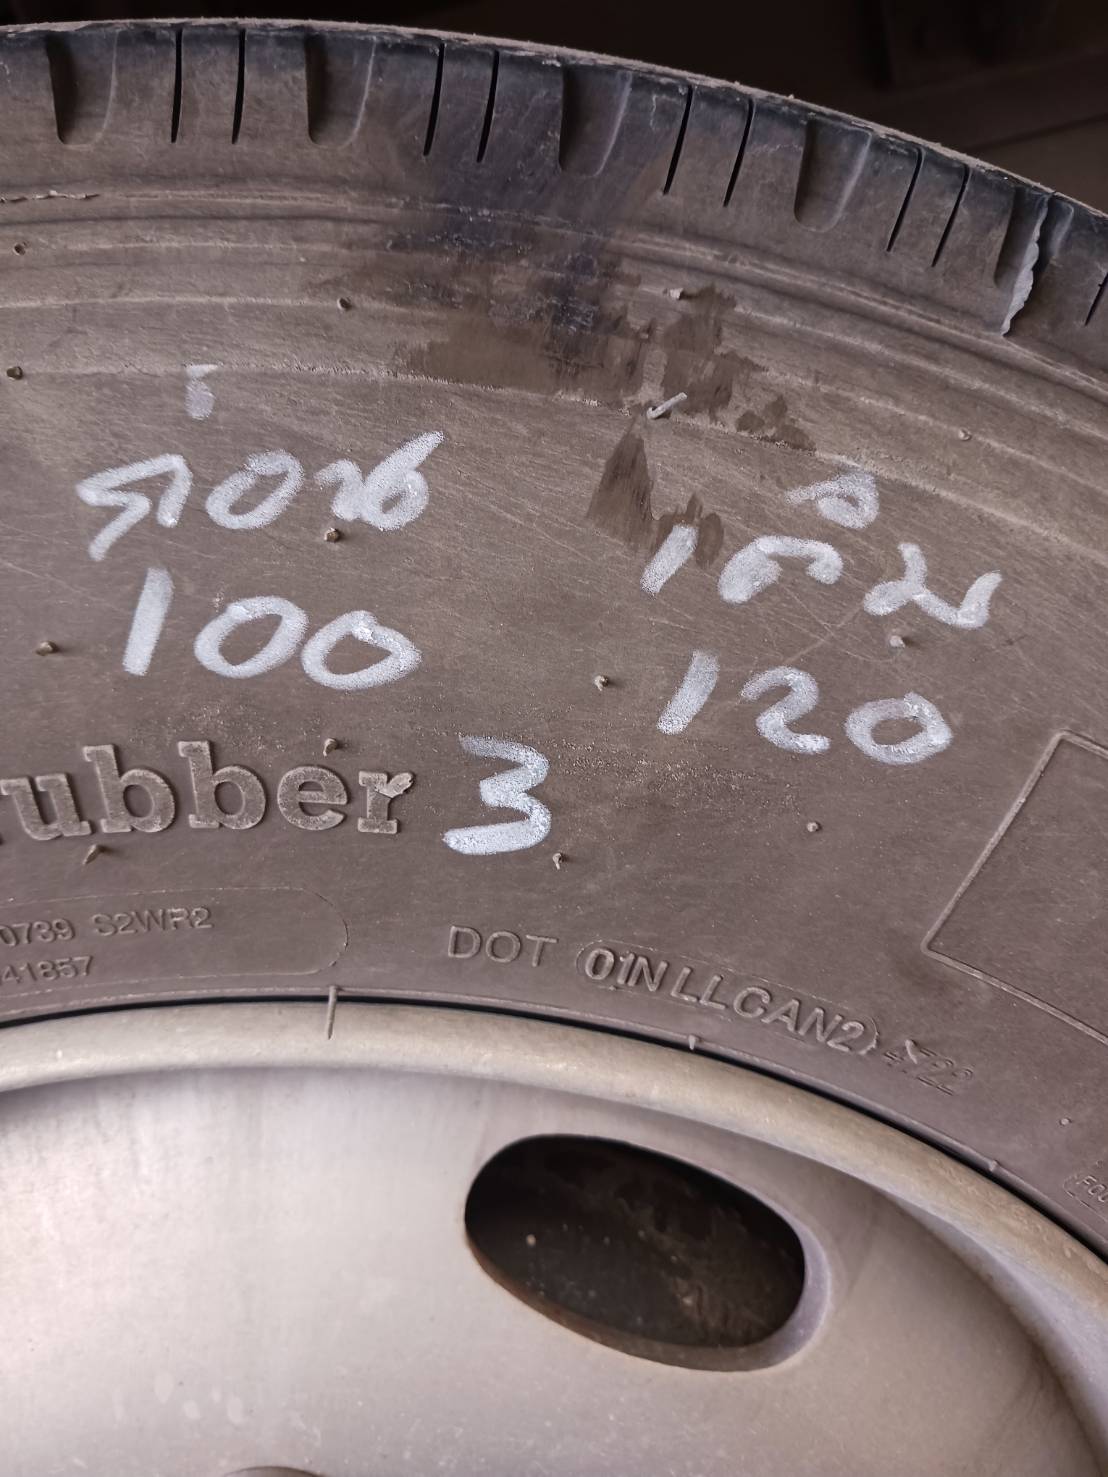 ก่อน
100
เติม
120
rubber 3
0739 S2WR2
41857
DOT 01N LLCAN2 4722